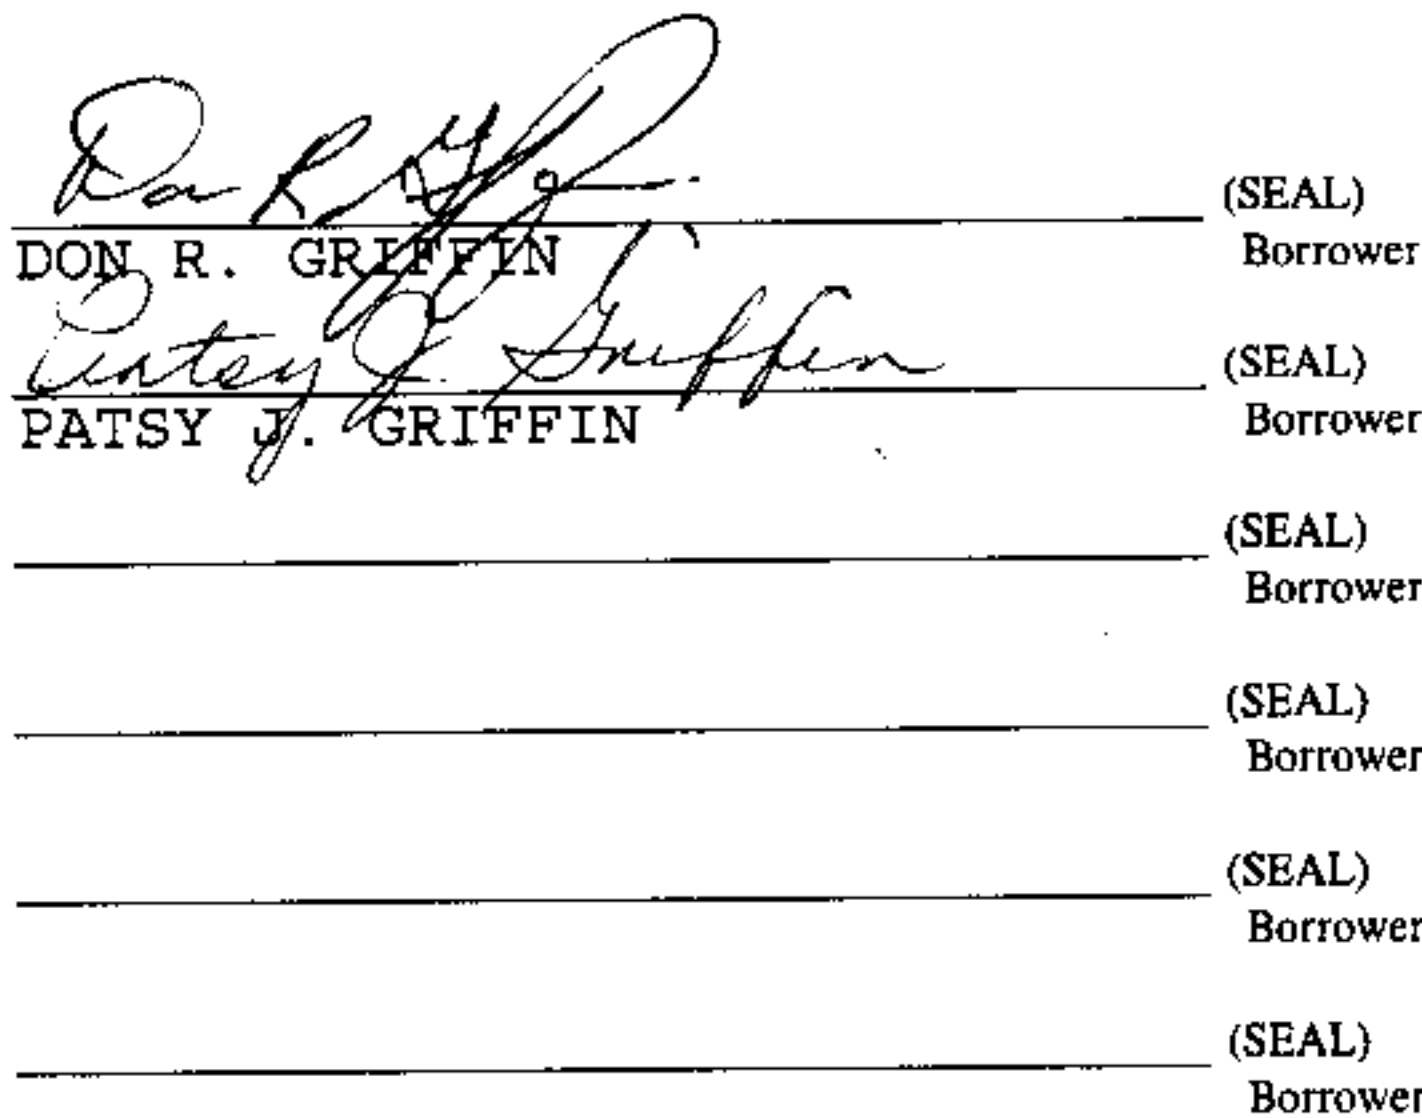 Don R. Griffin (SEAL)
DON R. GRIFFIN Borrower
Patsy J. Griffin (SEAL)
PATSY J. GRIFFIN Borrower
(SEAL)
Borrower
(SEAL)
Borrower
(SEAL)
Borrower
(SEAL)
Borrower